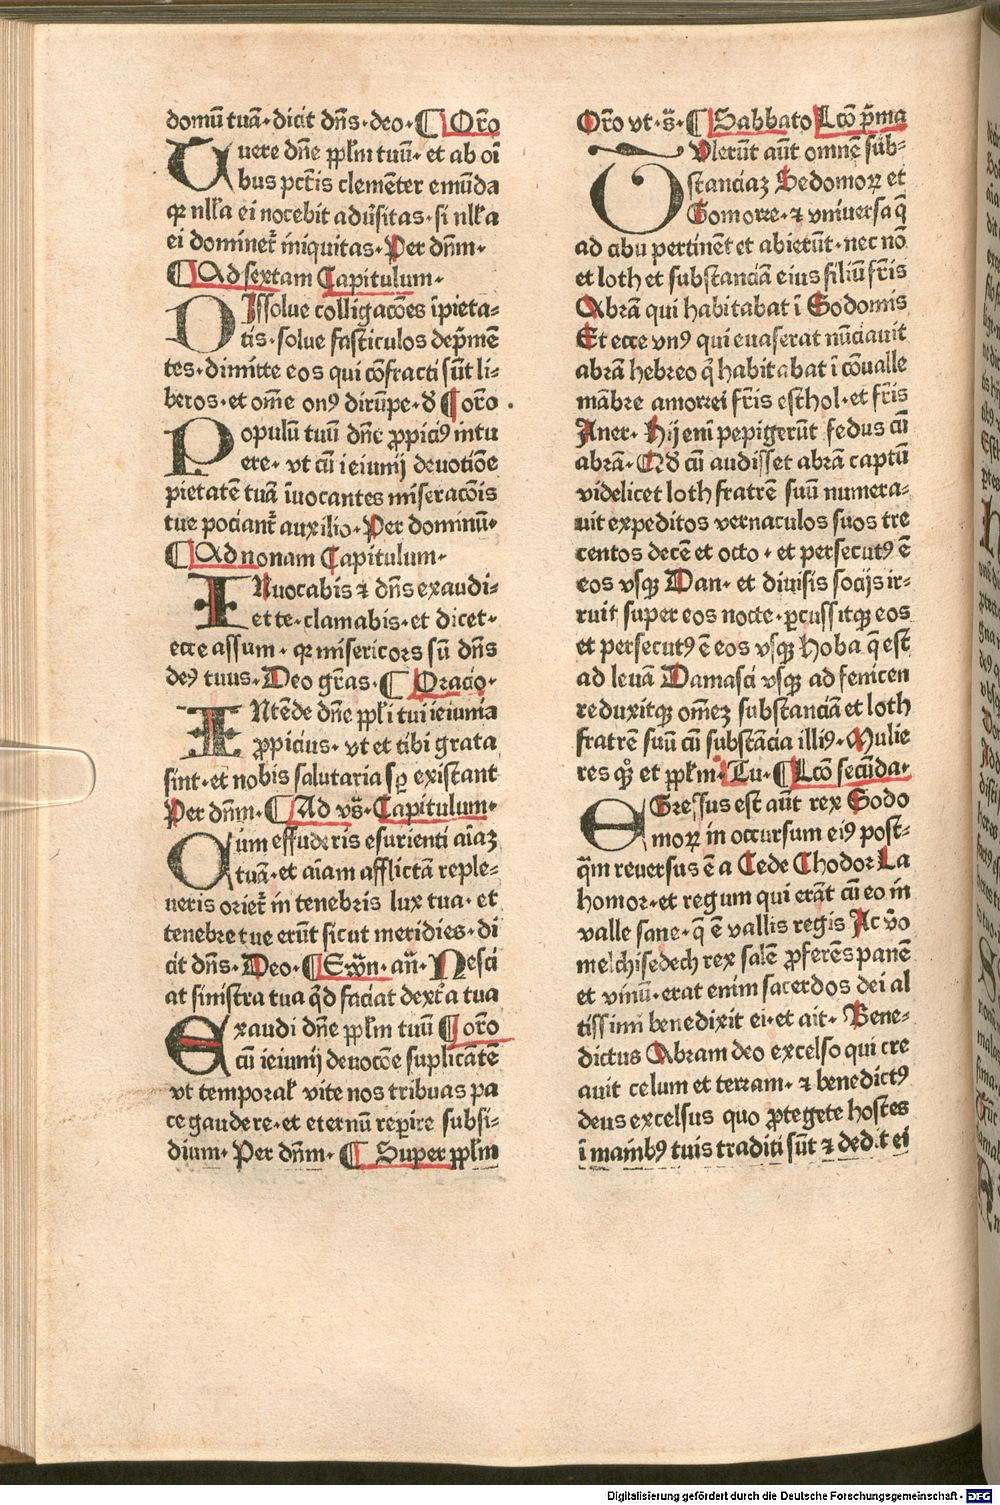 domū tuā. dicit dn̄s. deo. ¶ Orō
Tuere dn̄e pplm̄ tuū. et ab oī
bus pctīs clemēter emūda
qr nlla ei nocebit adūsitas. si nlla
ei dominet̄ iniquitas. Per dn̄m.
¶ Ad sextam Capitulum.
Dissolue colligacōes īpieta⸗
tis. solue fasticulos dep̄mē
tes. dimitte eos qui cōfracti sūt li⸗
beros. et om̄e onꝰ dirūpe. d̄ ¶ orō.
Populū tuū dn̄e ꝓpiciꝰ intu
ere. vt cū ieiunij deuotiōe
pietatē tuā īuocantes miseracōis
tue pociant̄ auxilio. Per dominū.
¶ Ad nonam Capitulum.
INuocabis ⁊ dn̄s exaudi⸗
et te. clamabis. et dicet.
ecce assum. qr misericors sū dn̄s
deꝰ tuus. Deo grās. ¶ Oracio.
INtēde dn̄e ppl̄i tui ieiunia
ꝓpicius. vt et tibi grata
sint. et nobis salutaria sꝑ existant
Per dn̄m. ¶ Ad vs̄. Capitulum.
Cum effuderis esurienti aīaꝫ
tuā. et aīam afflictā reple⸗
ueris oriet̄ in tenebris lux tua. et
tenebre tue erūt sicut meridies. di
cit dn̄s. Deo. ¶ Ewn̄. an̄. Nesci
at sinistra tua qd̄ faciat dext̄a tua
Exaudi dn̄e pplm̄ tuū ¶ orō
cū ieiunij deuocōe suplicātē
vt temporal̄ vite nos tribuas pa
ce gaudere. et eternū reꝑire subsi⸗
dium. Per dn̄m. ¶ Super pplm̄
Orō vt. s̄. ¶ Sabbato Lcō p̄ma
Tulerūt aūt omnē sub⸗
stanciaꝫ Sedomoꝝ et
Gomorre. ⁊ vniuersa q̄
ad cibū pertinēt et abierūt. nec nō
et loth et substanciā eius filiū frīs
Abrā qui habitabat ī Sodomis
Et ecce vnꝰ qui euaserat nūciauit
abrā hebreo q̄ habitabat ī cōualle
mābre amorrei frīs eschol. et frīs
Aner. Hij enī pepigerūt fedus cū
abrā. Qd̄ cū audisset abrā captū
videlicet loth fratrē suū numera⸗
uit expeditos vernaculos suos tre
centos decē et octo. et persecutꝰ ē
eos vsqꝫ Dan. et diuisis socijs ir⸗
ruit super eos nocte. ꝑcussitqꝫ eos
et persecutꝰ ē eos vsqꝫ Hoba q̄ est
ad leuā Damasci vsqꝫ ad fenicen
reduxitqꝫ om̄eꝫ substanciā et loth
fratrē suū cū substācia illiꝰ. Mulie
res qꝫ et pplm̄. Tu. ¶ Lcō secūda.
EGressus est aūt rex Sodo
moꝝ in occursum eiꝰ post⸗
q̄m reuersus ē a Cede Chodor La
homor. et regum qui erāt cū eo in
valle sane. q̄ ē vallis regis Ac v̄o
melchisedech rex salē ꝓferēs panē
et vinū. erat enim sacerdos dei al
tissimi benedixit ei. et ait. Bene⸗
dictus Abram deo excelso qui cre
auit celum et terram. ⁊ benedictꝰ
deus excelsus quo ꝓtegete hostes
ī manibꝰ tuis traditi sūt ⁊ dedit ei